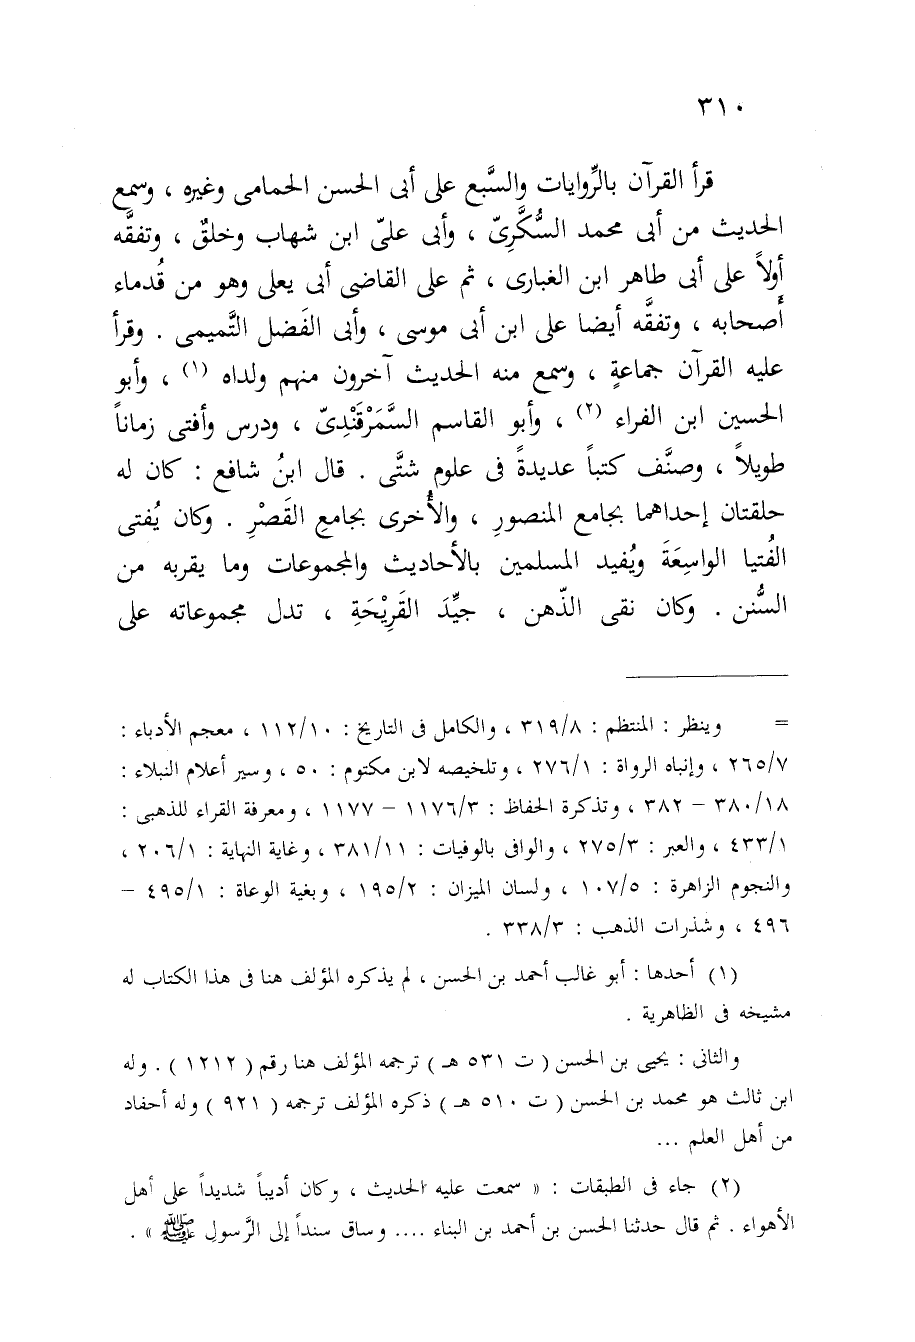 ٣١٠
قرأ القرآن بالرِّوايات والسَّبع على أبى الحسن الحمامى وغيره ، وسمع
الحديث من أبى محمد السُّكَّرِىّ ، وأبى علىّ ابن شهاب وخلقٌ ، وتفقَّه
أولاً على أبى طاهر ابن الغبارى ، ثم على القاضى أبى يعلى وهو من قُدماء
أَصحابه ، وتفقَّه أيضا على ابن أبى موسى ، وأبى الفَضل التَّميمى . وقرأ
عليه القرآن جماعةٍ ، وسمع منه الحديث آخرون منهم ولداه (١) ، وأبو
الحسين ابن الفراء (٢) ، وأبو القاسم السَّمَرْقَنْدِىّ ، ودرس وأفتى زماناً
طويلاً ، وصنَّف كتباً عديدةً فى علوم شتَّى . قال ابنُ شافع : كان له
حلقتان إحداهما بجامع المنصورِ ، والأُخرى بجامعِ القَصْرِ . وكان يُفتى
الفُتيا الواسِعَةَ ويُفيد المسلمين بالأحاديث والمجموعات وما يقربه من
السُّنن . وكان نقى الذّهن ، جيِّدَ القَرِيْحَةِ ، تدل مجموعاته على
= وينظر : المنتظم : ٣١٩/٨ ، والكامل فى التاريخ : ١١٢/١٠ ، معجم الأدباء :
٢٦٥/٧ ، وإنباه الرواة : ٢٧٦/١ ، وتلخيصه لابن مكتوم : ٥٠ ، وسير أعلام النبلاء :
٣٨٠/١٨ – ٣٨٢ ، وتذكرة الحفاظ : ١١٧٦/٣ – ١١٧٧ ، ومعرفة القراء للذهبى :
٤٣٣/١ ، والعبر : ٢٧٥/٣ ، والوافى بالوفيات : ٣٨١/١١ ، وغاية النهاية : ٢٠٦/١ ،
والنجوم الزاهرة : ١٠٧/٥ ، ولسان الميزان : ١٩٥/٢ ، وبغية الوعاة : ٤٩٥/١ –
٤٩٦ ، وشذرات الذهب : ٣٣٨/٣ .
(١) أحدها : أبو غالب أحمد بن الحسن ، لم يذكره المؤلف هنا فى هذا الكتاب له
مشيخه فى الظاهرية .
والثانى : يحيى بن الحسن ( ت ٥٣١ هـ ) ترجمه المؤلف هنا رقم ( ١٢١٢ ) . وله
ابن ثالث هو محمد بن الحسن ( ت ٥١٠ هـ ) ذكره المؤلف ترجمه ( ٩٢١ ) وله أحفاد
من أهل العلم ...
(٢) جاء فى الطبقات : « سمعت عليه الحديث ، وكان أديباً شديداً على أهل
الأهواء . ثم قال حدثنا الحسن بن أحمد بن البناء .... وساق سنداً إلى الرَّسولِ ﷺ » .